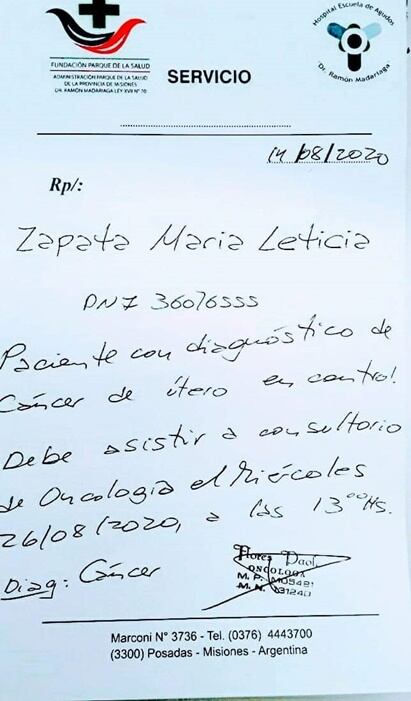 FUNDACIÓN PARQUE DE LA SALUD
ADMINISTRACIÓN PARQUE DE LA SALUD
DE LA PROVINCIA DE MISIONES
DR. RAMÓN MADARIAGA LEY XVII Nº 70
Hospital Escuela de Agudos
"Dr. Ramón Madariaga"
SERVICIO
14/08/2020
Rp/:
Zapata Maria Leticia
DNI 36076555
Paciente con diagnóstico de
Cáncer de útero en control.
Debe asistir a consultorio
de Oncologia el Miércoles
26/08/2020, a las 13⁰⁰Hs.
Diag: Cáncer
Flores
ONCOLOGA
M. P.
M. N.
Marconi N° 3736 - Tel. (0376) 4443700
(3300) Posadas - Misiones - Argentina